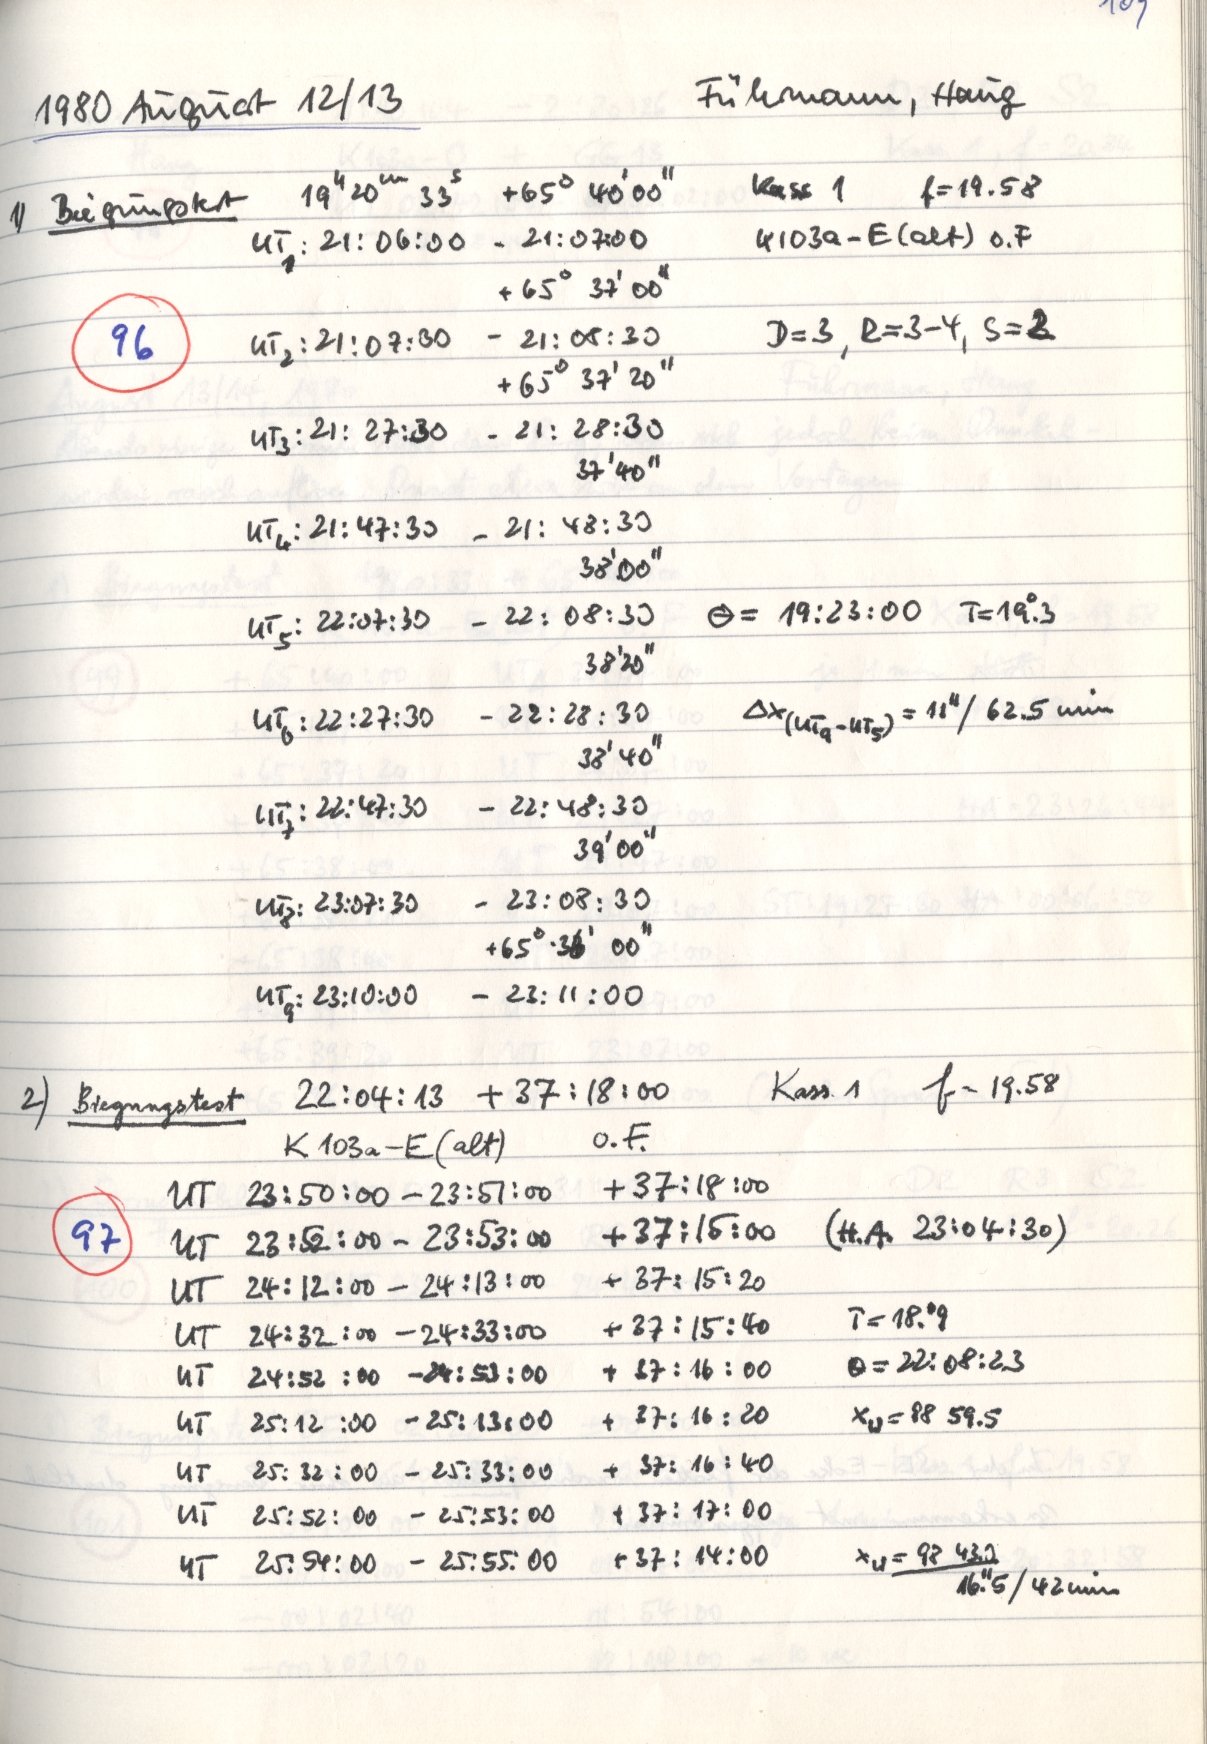 109
1980 August 12/13 Führmann, Haug
1) Biegungstest 19h 20m 33s +65° 40' 00" Kass 1 f=19.58
UT1: 21:06:00 - 21:07:00 4103a-E (alt) o.F
+65° 37' 00"
96 UT2: 21:07:30 - 21:08:30 D=3, R=3-4, S=2
+65° 37' 20"
UT3: 21:27:30 - 21:28:30
37' 40"
UT4: 21:47:30 - 21:48:30
38' 00"
UT5: 22:07:30 - 22:08:30 θ= 19:23:00 T=19°.3
38' 20"
UT6: 22:27:30 - 22:28:30 Δx(UT9-UT5) = 11"/62.5 min
38' 40"
UT7: 22:47:30 - 22:48:30
39' 00"
UT8: 23:07:30 - 23:08:30
+65° 36' 00"
UT9: 23:10:00 - 23:11:00
2) Biegungstest 22:04:13 +37:18:00 Kass. 1 f = 19.58
K 103a-E (alt) o.F.
UT 23:50:00 - 23:51:00 +37:18:00
97 UT 23:52:00 - 23:53:00 +37:15:00 (H.A. 23:04:30)
UT 24:12:00 - 24:13:00 +37:15:20
UT 24:32:00 - 24:33:00 +37:15:40 T=18.°9
UT 24:52:00 - 24:53:00 +37:16:00 θ=22:08:23
UT 25:12:00 - 25:13:00 +37:16:20 xu = 98 59.5
UT 25:32:00 - 25:33:00 +37:16:40
UT 25:52:00 - 25:53:00 +37:17:00
UT 25:54:00 - 25:55:00 +37:14:00 xu = 98 43.0
16."5/42 min